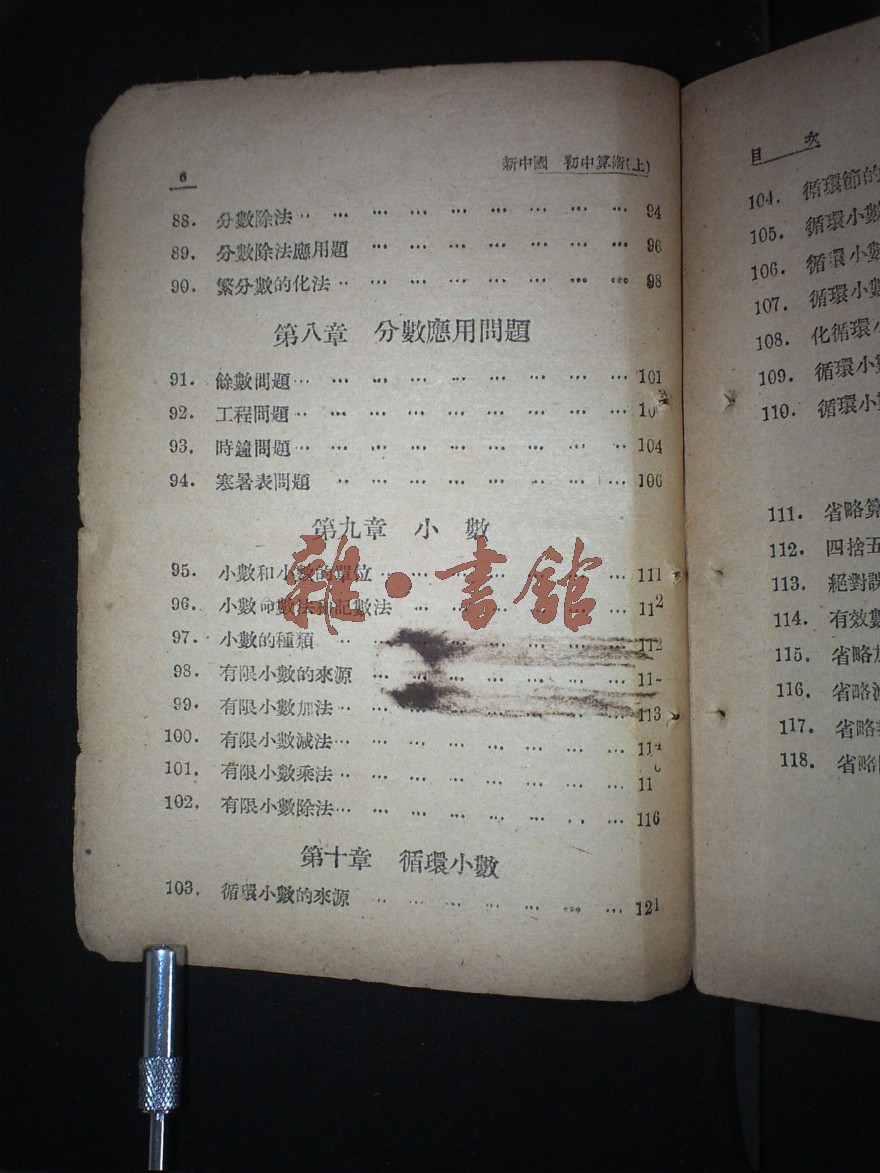 6 新中國 初中算術(上)
88. 分數除法 ... 94
89. 分數除法應用題 ... 96
90. 繁分數的化法 ... 98
第八章 分數應用問題
91. 餘數問題 ... 101
92. 工程問題 ... 10
93. 時鐘問題 ... 104
94. 寒暑表問題 ... 106
第九章 小數
95. 小數和小數的單位 ... 111
96. 小數命數法和記數法 ... 112
97. 小數的種類 ... 112
98. 有限小數的來源 ... 11
99. 有限小數加法 ... 113
100. 有限小數減法 ... 114
101. 有限小數乘法 ... 11
102. 有限小數除法 ... 116
第十章 循環小數
103. 循環小數的來源 ... 121
雜·書館
目次
104. 循環節的
105. 循環小數
106. 循環小數
107. 循環小數
108. 化循環小
109. 循環小數
110. 循環小數
111. 省略算
112. 四捨五
113. 絕對誤
114. 有效數
115. 省略加
116. 省略減
117. 省略
118. 省略